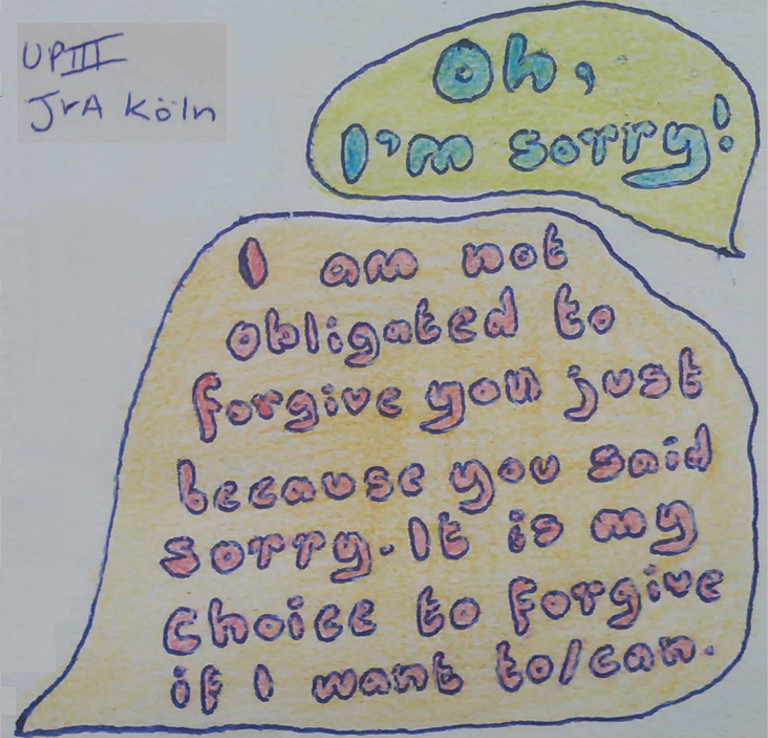 UPIII
JrA Köln
Oh,
I'm sorry!
I am not
obligated to
forgive you just
because you said
sorry. It is my
choice to forgive
if I want to/can.